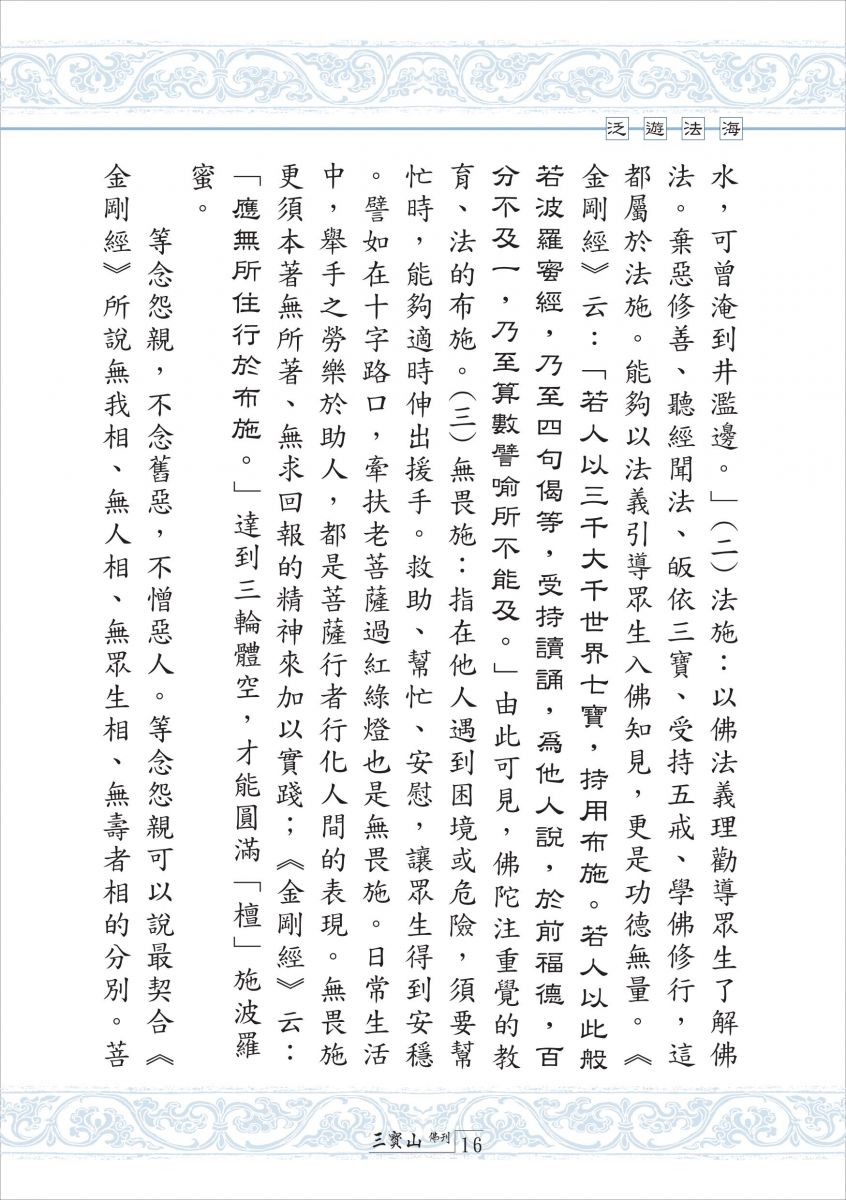 泛遊法海
水，可曾淹到井濫邊。」（二）法施：以佛法義理勸導眾生了解佛
法。棄惡修善、聽經聞法、皈依三寶、受持五戒、學佛修行，這
都屬於法施。能夠以法義引導眾生入佛知見，更是功德無量。《
金剛經》云：「若人以三千大千世界七寶，持用布施。若人以此般
若波羅蜜經，乃至四句偈等，受持讀誦，為他人說，於前福德，百
分不及一，乃至算數譬喻所不能及。」由此可見，佛陀注重覺的教
育、法的布施。（三）無畏施：指在他人遇到困境或危險，須要幫
忙時，能夠適時伸出援手。救助、幫忙、安慰，讓眾生得到安穩
。譬如在十字路口，牽扶老菩薩過紅綠燈也是無畏施。日常生活
中，舉手之勞樂於助人，都是菩薩行者行化人間的表現。無畏施
更須本著無所著、無求回報的精神來加以實踐；《金剛經》云：
「應無所住行於布施。」達到三輪體空，才能圓滿「檀」施波羅
蜜。
等念怨親，不念舊惡，不憎惡人。等念怨親可以說最契合《
金剛經》所說無我相、無人相、無眾生相、無壽者相的分別。菩
三寶山 佛刊 16